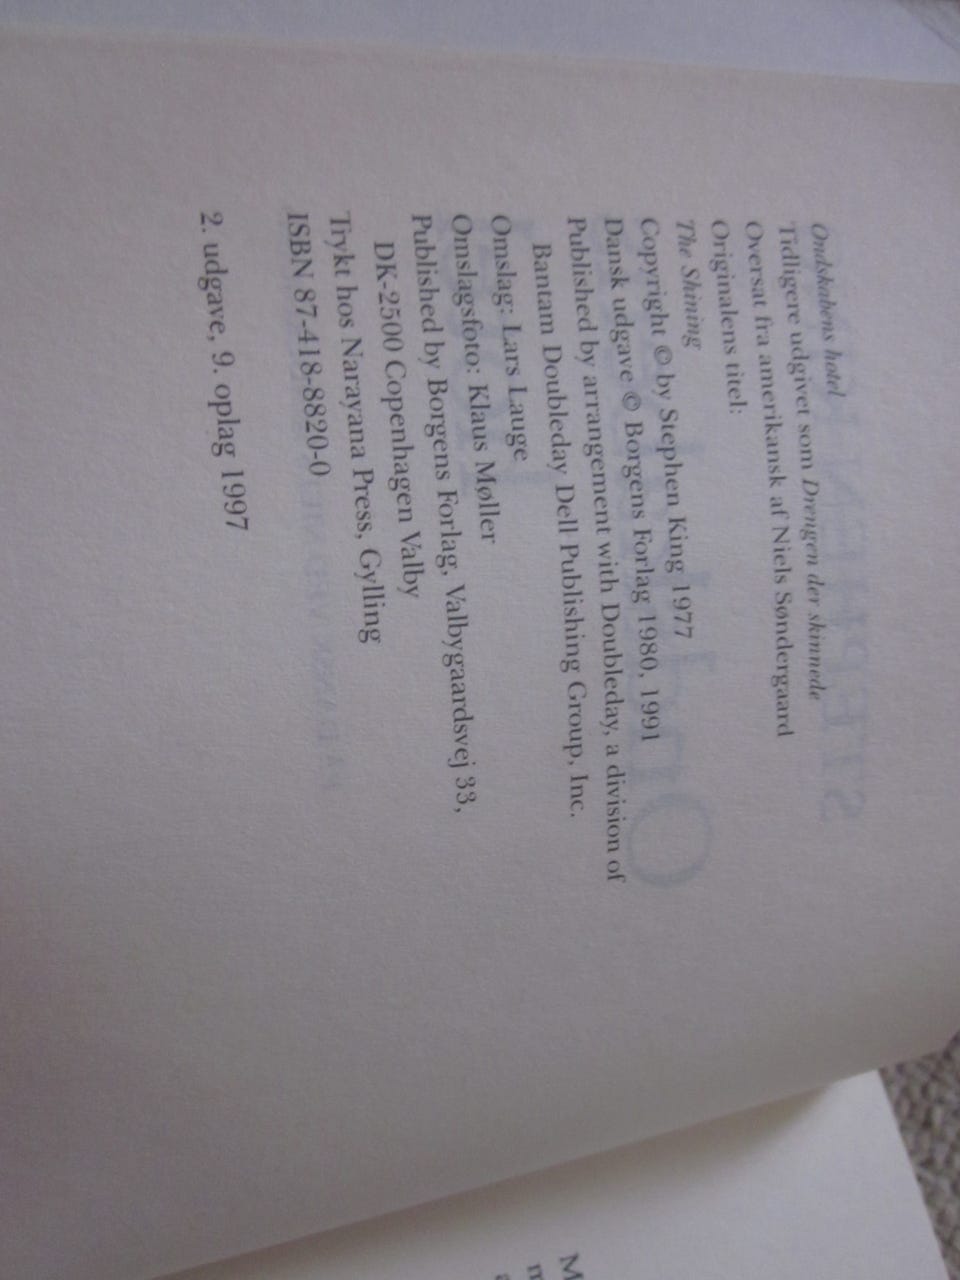 Ondskabens hotel
Tidligere udgivet som Drengen der skinnede
Oversat fra amerikansk af Niels Søndergaard
Originalens titel:
The Shining
Copyright © by Stephen King 1977
Dansk udgave © Borgens Forlag 1980, 1991
Published by arrangement with Doubleday, a division of
Bantam Doubleday Dell Publishing Group, Inc.
Omslag: Lars Lauge
Omslagsfoto: Klaus Møller
Published by Borgens Forlag, Valbygaardsvej 33,
DK-2500 Copenhagen Valby
Trykt hos Narayana Press, Gylling
ISBN 87-418-8820-0
2. udgave, 9. oplag 1997